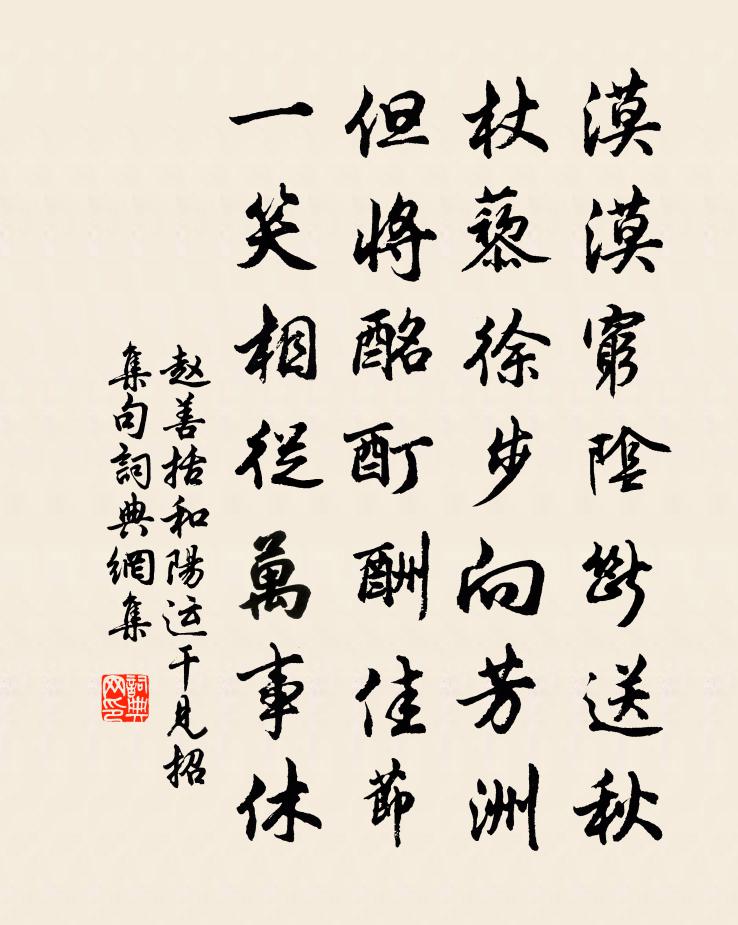 漠漠窮陰斷送秋
杖藜徐步向芳洲
但將酩酊酬佳節
一笑相從萬事休
赵善括和陽运干見招
集句詞典網集
詞典网印